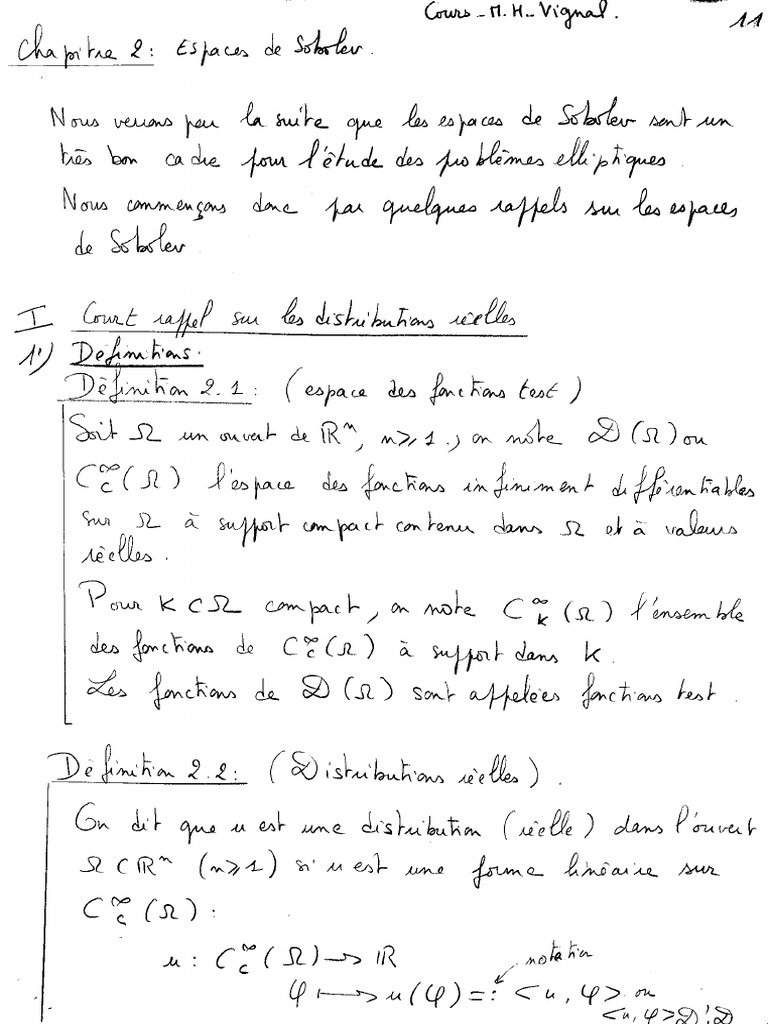 Cours - M. H. Vignal. 11
Chapitre 2 : Espaces de Sobolev.
Nous verrons par la suite que les espaces de Sobolev sont un
très bon cadre pour l'étude des problèmes elliptiques.
Nous commençons donc par quelques rappels sur les espaces
de Sobolev.
I Court rappel sur les distributions réelles
1°) Définitions.
Définition 2.1 : (espace des fonctions test)
Soit Ω un ouvert de ℝⁿ, n≥1, on note 𝒟(Ω) ou
C_c^∞(Ω) l'espace des fonctions infiniment différentiables
sur Ω à support compact contenu dans Ω et à valeurs
réelles.
Pour K⊂Ω compact, on note C_K^∞(Ω) l'ensemble
des fonctions de C_c^∞(Ω) à support dans K.
Les fonctions de 𝒟(Ω) sont appelées fonctions test.
Définition 2.2 : (Distributions réelles).
On dit que u est une distribution (réelle) dans l'ouvert
Ω⊂ℝⁿ (n≥1) si u est une forme linéaire sur
C_c^∞(Ω) :
u : C_c^∞(Ω) → ℝ
notation
φ ⟼ u(φ) =: <u, φ> ou
<u, φ>𝒟',𝒟